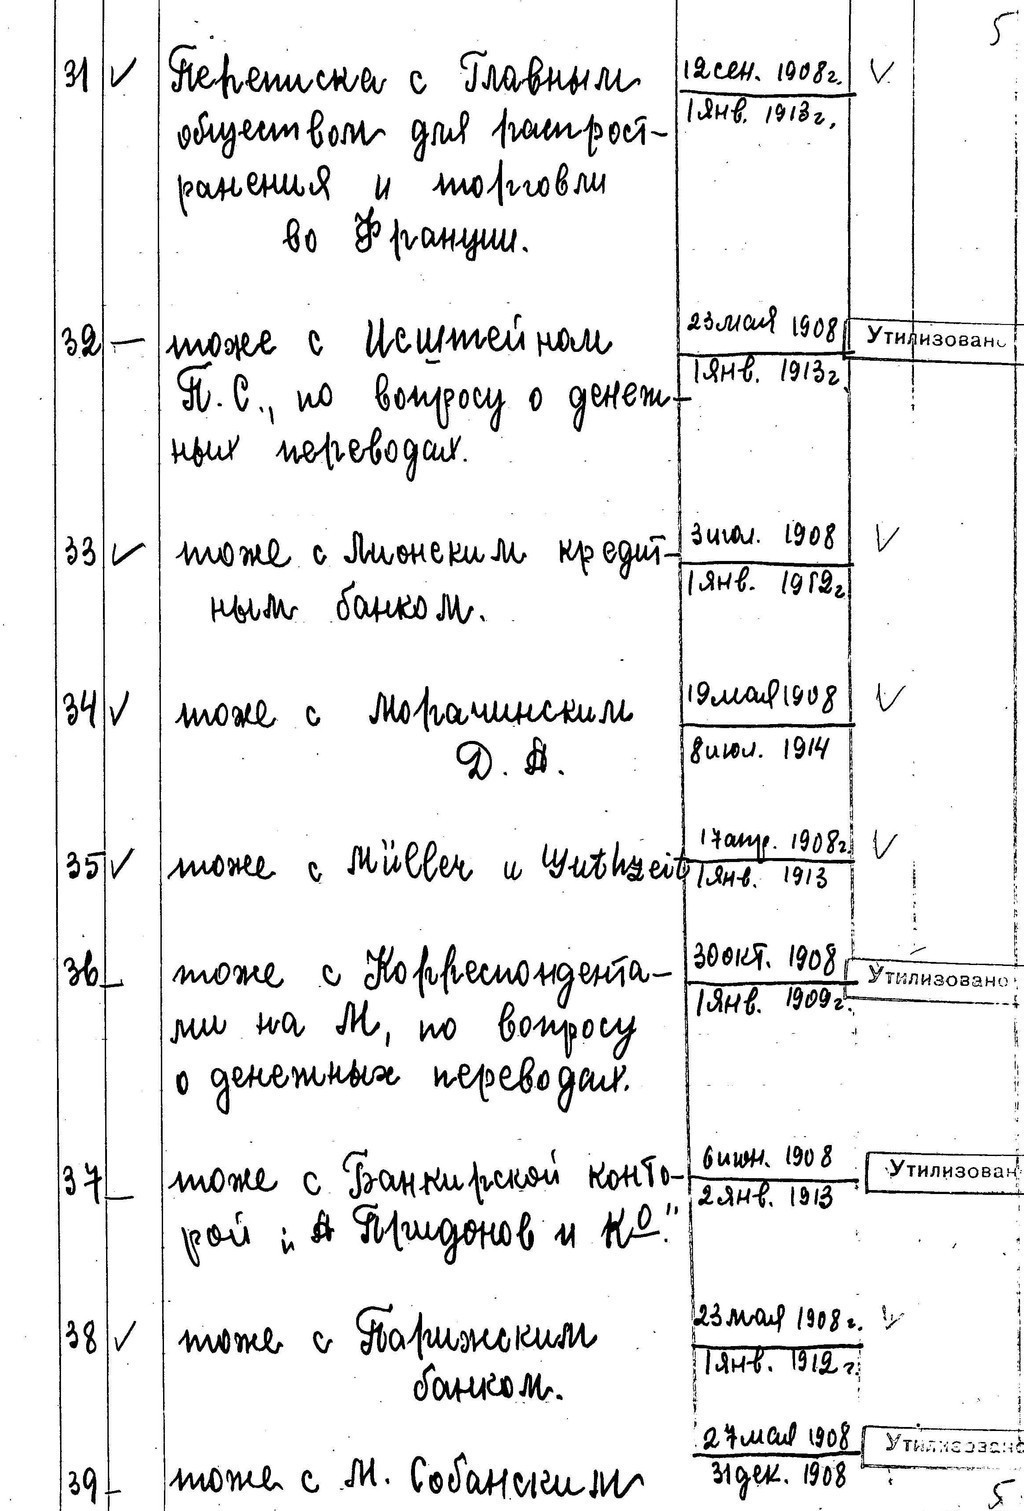 5
31 ✓ Переписка с Главным 12 сен. 1908г. ✓
обществом для распрост- 1 янв. 1913г.
ранения и торговли
во Франции.
32 — тоже с Исштейном 23 мая 1908 Утилизовано
П.С., по вопросу о денеж- 1 янв. 1913г.
ных переводах.
33 ✓ тоже с Лионским кредит- 3 июл. 1908 ✓
ным банком. 1 янв. 1912г
34 ✓ тоже с Морачинским 19 мая 1908 ✓
Д. А. 8 июл. 1914
35 ✓ тоже с Müller и 17 апр. 1908г. ✓
1 янв. 1913
36 — тоже с Корреспондента- 30 окт. 1908 Утилизовано
ми на М, по вопросу 1 янв. 1909г.
о денежных переводах.
37 — тоже с Банкирской конто- 6 июн. 1908 Утилизован
рой „А Придонов и К⁰." 2 янв. 1913
38 ✓ тоже с Парижским 23 мая 1908г. ✓
банком. 1 янв. 1912г.
39 — тоже с М. Собанским 27 мая 1908 Утилизовано
31 дек. 1908
5